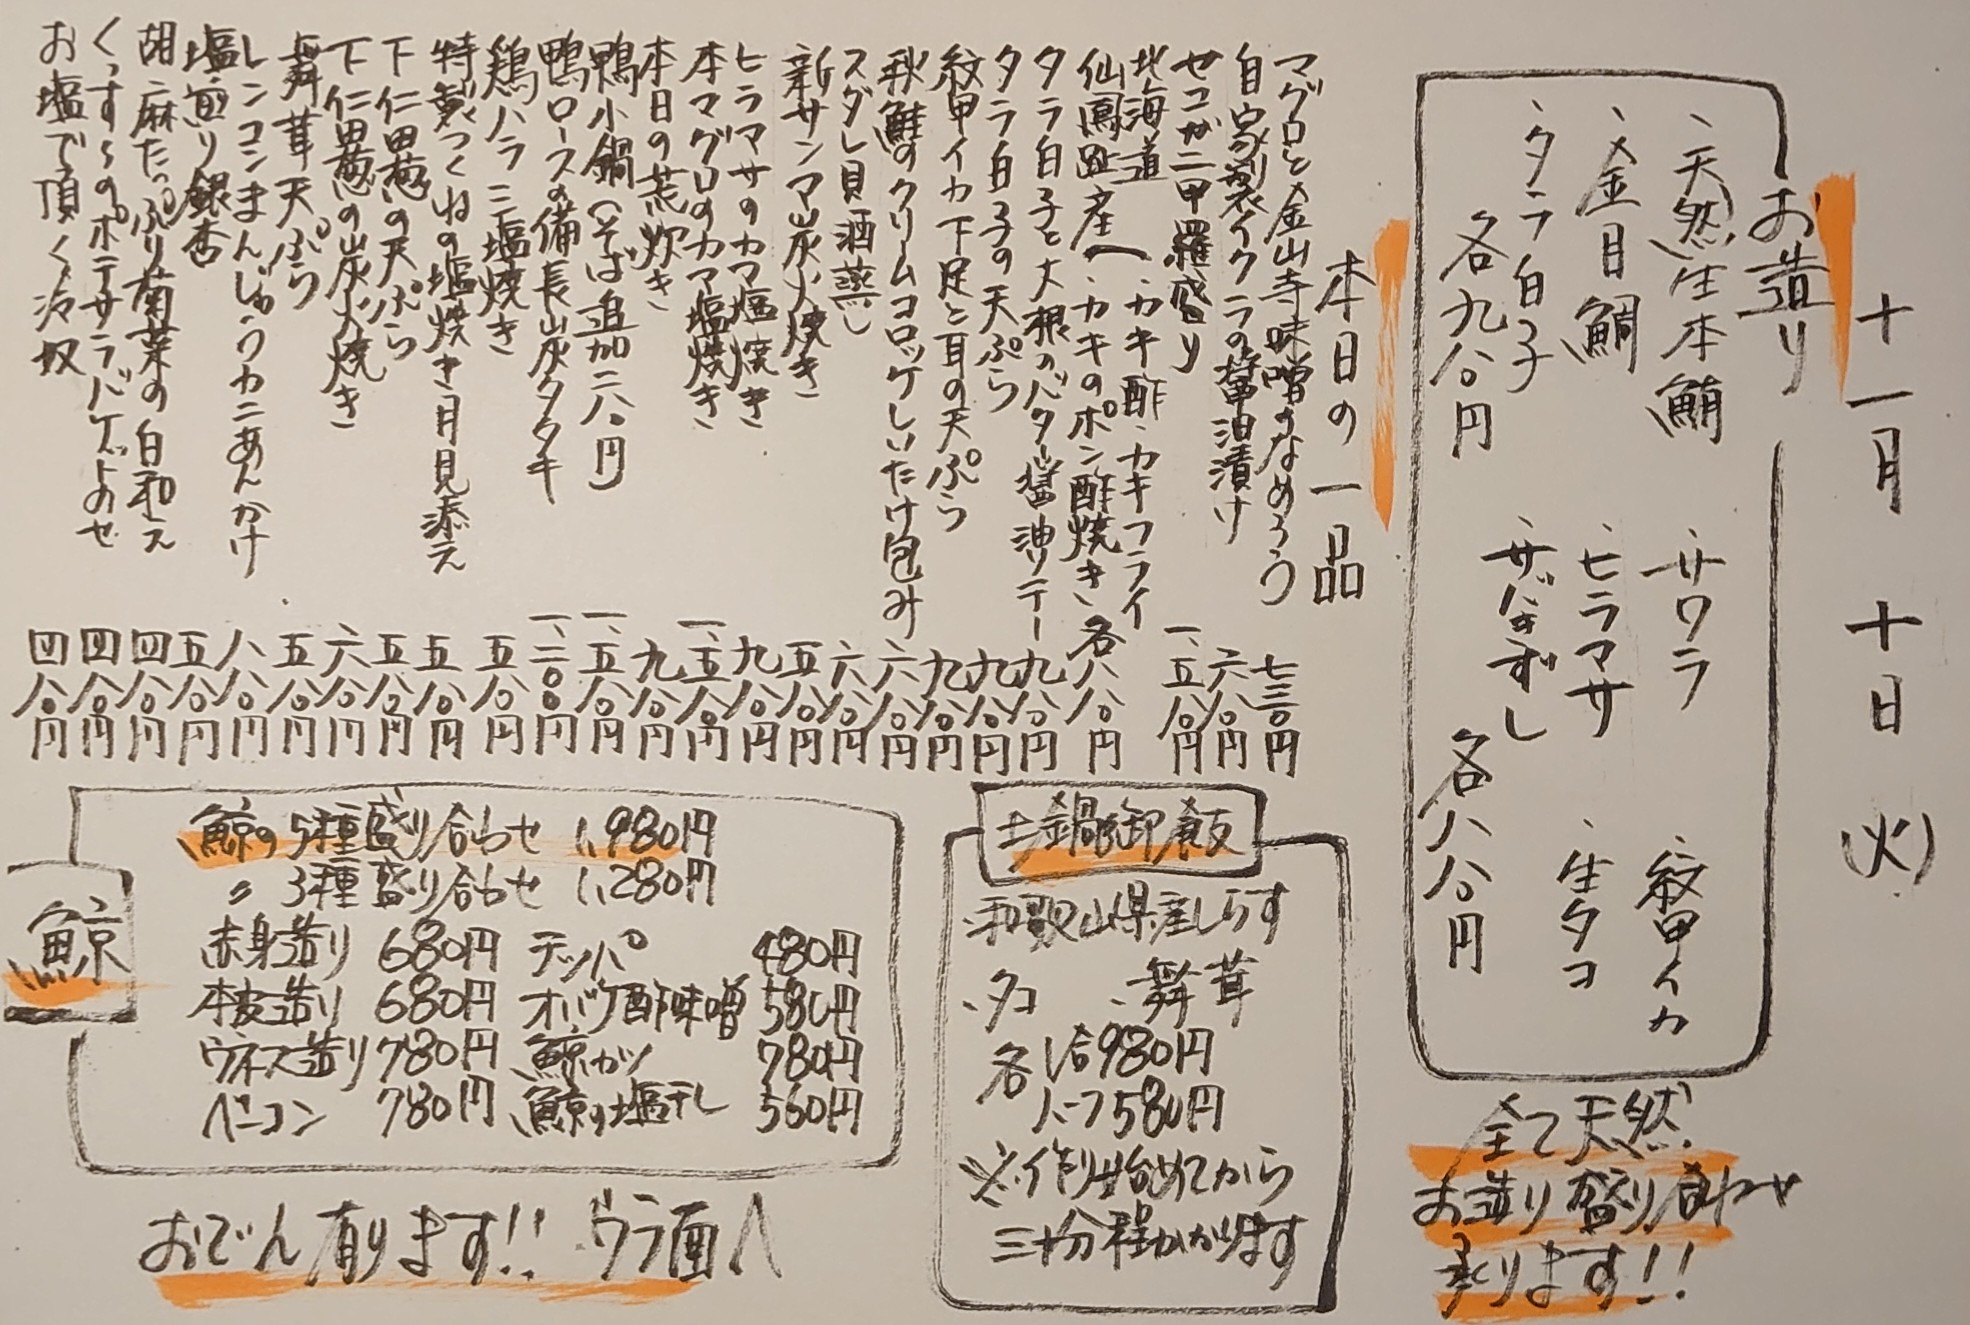 十一月十日(火)
お造り
、天然生本鮪
、金目鯛
、タラ白子
各九八〇円
、サワラ
、ヒラマサ
、サバきずし
、紋甲イカ
、生タコ
各八八〇円
全て天然
お造り盛り合わせ
承ります!!
本日の一品
マグロと金山寺味噌のなめろう 七三〇円
自家製イクラの醤油漬け 六八〇円
セコガニ甲羅盛り 一、五八〇円
北海道 (、カキ酢、カキフライ
仙鳳趾産 (、カキのポン酢焼き、各八八〇円
タラ白子と大根のバター醤油ソテー 九八〇円
タラ白子の天ぷら 九八〇円
紋甲イカ下足と耳の天ぷら 九八〇円
秋鮭のクリームコロッケしいたけ包み 六八〇円
スダレ貝酒蒸し 六八〇円
新サンマ炭火焼き 五八〇円
ヒラマサのカマ塩焼き 九八〇円
本マグロのカマ塩焼き 一、五八〇円
本日の荒炊き 九八〇円
鴨小鍋(そば追加二八〇円 一、五八〇円
鴨ロースの備長炭タタキ 一、二〇〇円
鶏ハラミ塩焼き 五八〇円
特製つくねの塩焼き月見添え 五八〇円
下仁田葱の天ぷら 五八〇円
下仁田葱の炭火焼き 六八〇円
舞茸天ぷら 五八〇円
レンコンまんじゅうカニあんかけ 八八〇円
塩煎り銀杏 五八〇円
胡麻たっぷり菊菜の白和え 四八〇円
くっすんのポテサラバゲットのせ 四八〇円
お塩で頂く冷奴 四八〇円
土鍋御飯
、和歌山県産しらす
、タコ 、舞茸
各 1合980円
ハーフ580円
※作り始めてから
三十分程かかります
鯨
鯨の5種盛り合わせ 1,980円
〃 3種盛り合わせ 1,280円
赤身造り 680円 テッパ 480円
本皮造り 680円 オバケ酢味噌 580円
ウネス造り 780円 鯨カツ 780円
ベーコン 780円 鯨の塩干し 560円
おでん有ります!! ウラ面へ